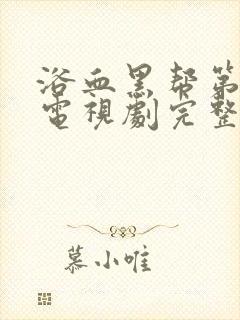 浴血黑帮第
電視劇完整
慕小唯